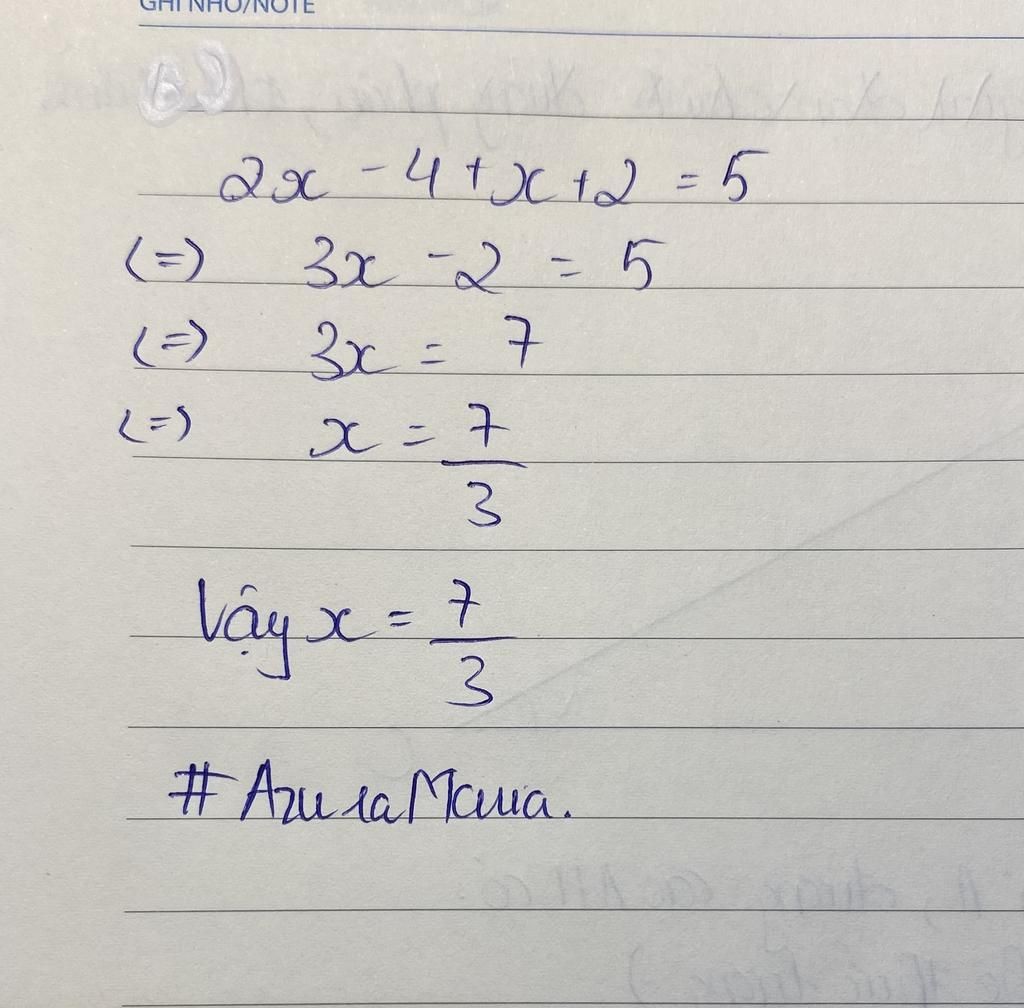 GHI NHỚ/NOTE
2x - 4 + x + 2 = 5
(=) 3x - 2 = 5
(=) 3x = 7
(=) x = 7/3
Vậy x = 7/3